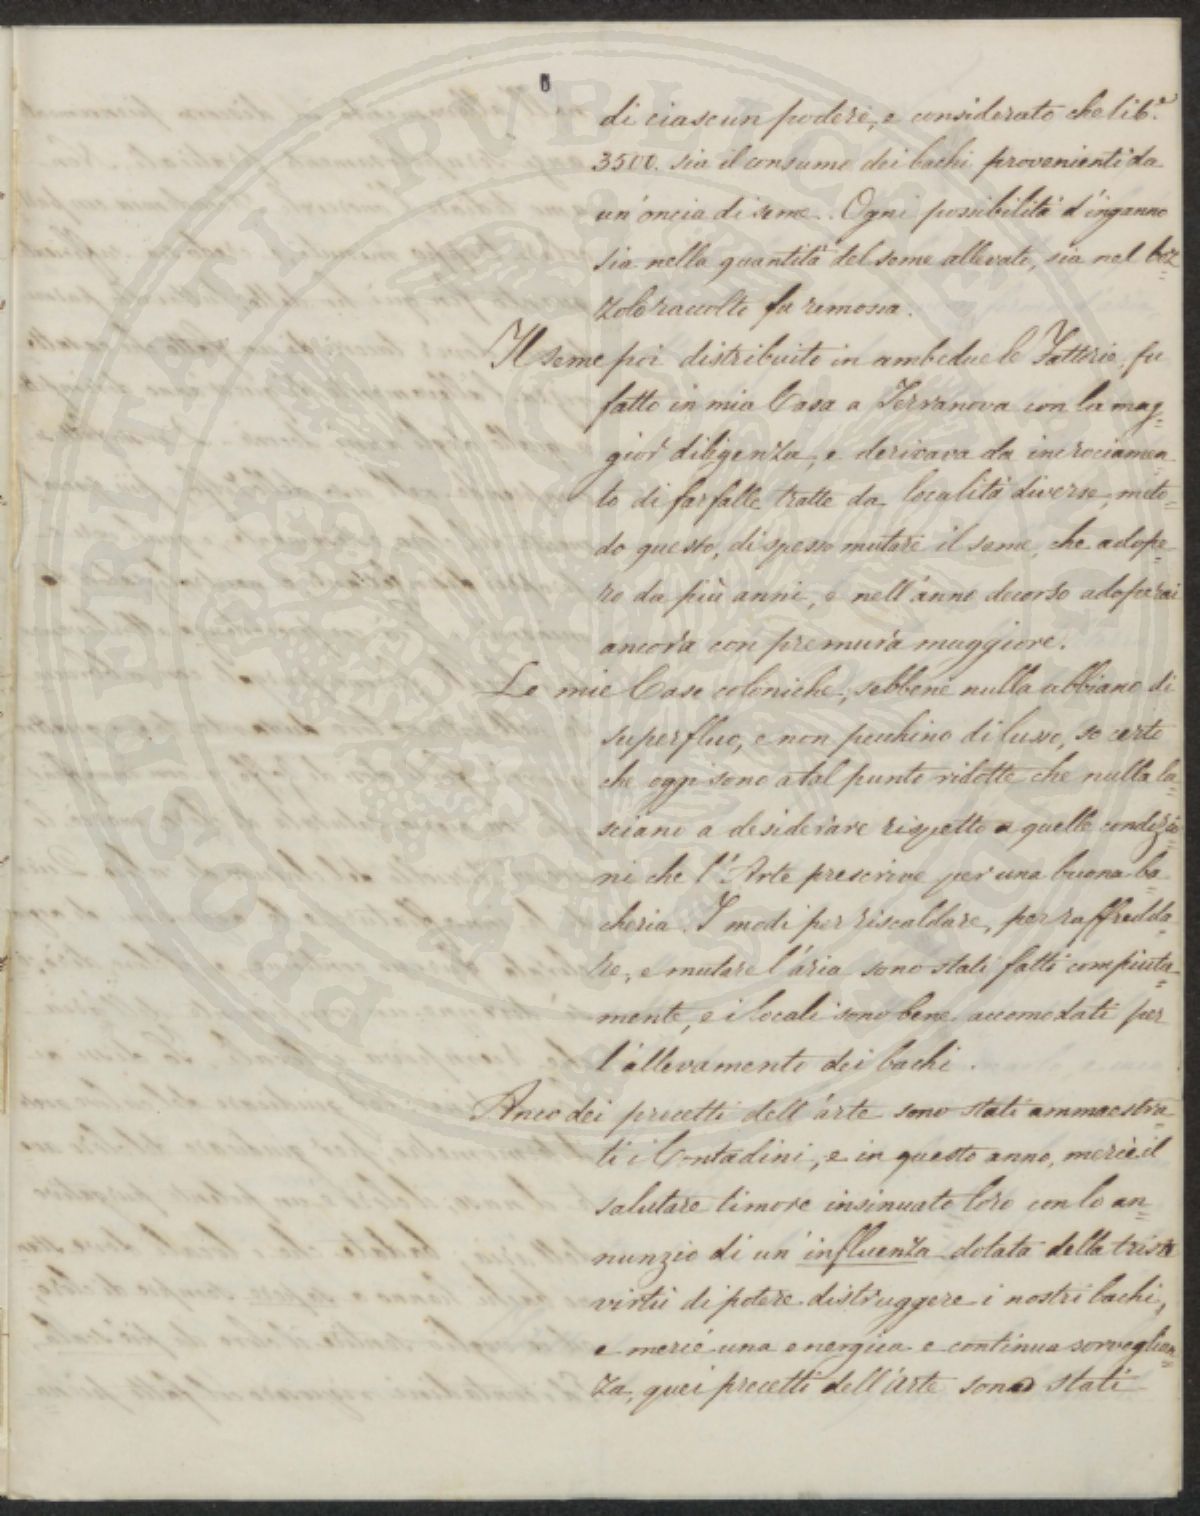 di ciascun podere, e considerato che lib.e
3500. sia il consumo dei bachi provenienti da
un'oncia di seme. Ogni possibilità d'inganno
sia nella quantità del seme allevato, sia nel boz=
zolo raccolto fu remossa.
Il seme poi distribuito in ambedue le Fattorie, fu
fatto in mia Casa a Terranova con la mag=
gior diligenza, e derivava da incrociamen=
to di farfalle tratte da località diverse, meto=
do questo, di spesso mutare il seme, che adope=
ro da più anni, e nell'anno decorso adoperai
ancora con premura maggiore.
Le mie Case coloniche, sebbene nulla abbiano di
superfluo, e non pecchino di lusso, so certo
che oggi sono a tal punto ridotte che nulla la=
sciano a desiderare rispetto a quelle condizio=
ni che l'Arte prescrive per una buona ba=
cheria. I modi per riscaldare, per raffredda=
re, e mutare l'aria sono stati fatti compiuta=
mente, e i locali sono bene accomodati per
l'allevamento dei bachi.
Anco dei precetti dell'arte sono stati ammaestra=
ti i Contadini, e in questo anno, mercè il
salutare timore insinuato loro con lo an=
nunzio di un'influenza dotata della triste
virtù di potere distruggere i nostri bachi,
e mercè una energica e continua sorveglian=
za, quei precetti dell'Arte sono stati